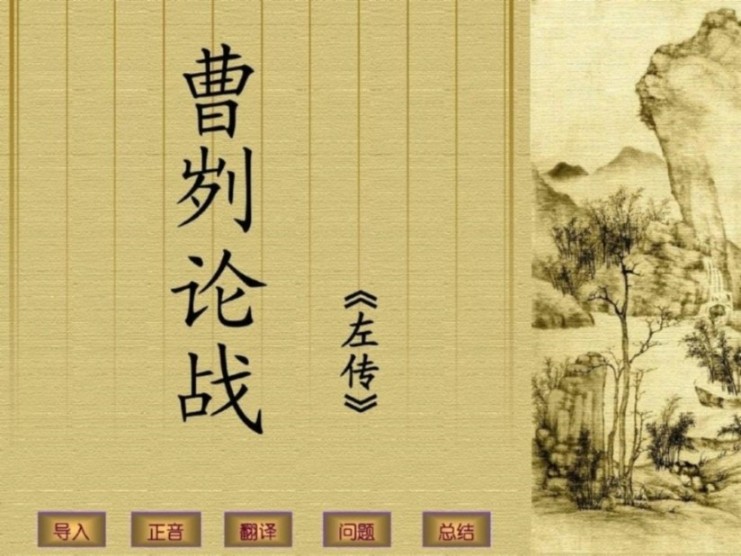 曹刿论战
《左传》
导入
正音
翻译
问题
总结